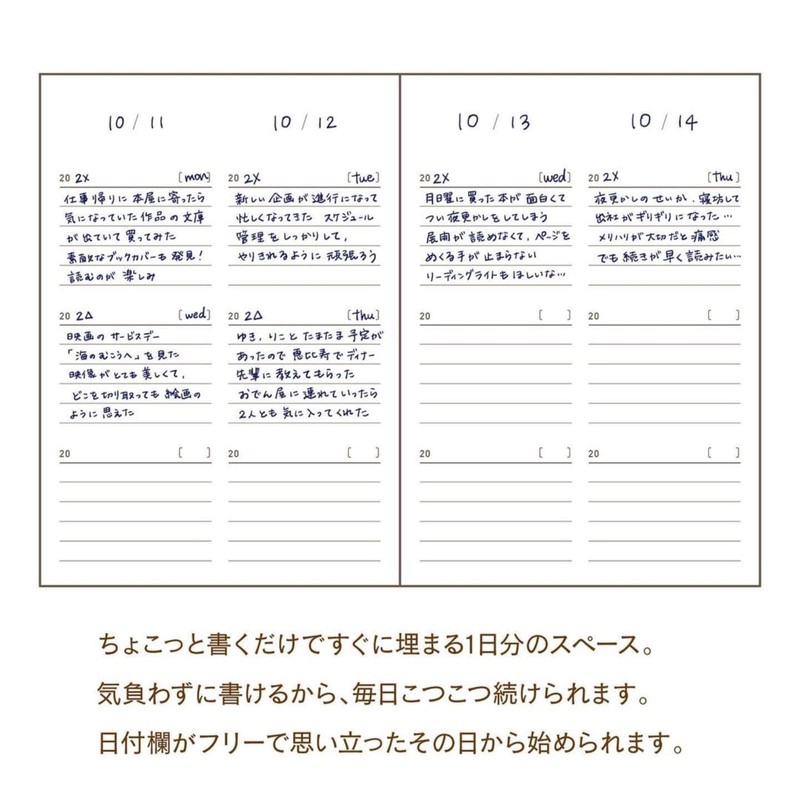 10 / 11
20 2X [mon]
仕事帰りに本屋に寄ったら
気になっていた作品の文庫
が出ていて買ってみた
素敵なブックカバーも発見!
読むのが楽しみ
20 2△ [wed]
映画のサービスデー
「海のむこうへ」を見た
映像がとても美しくて、
どこを切り取っても絵画の
ように思えた
20 [ ]
10 / 12
20 2X [tue]
新しい企画が進行になって
忙しくなってきた スケジュール
管理をしっかりして、
やりきれるように頑張ろう
20 2△ [thu]
ゆき、りことたまたま予定が
あったので恵比寿でディナー
先輩に教えてもらった
おでん屋に連れていったら
2人とも気に入ってくれた
20 [ ]
10 / 13
20 2X [wed]
月曜に買った本が面白くて
つい夜更かしをしてしまう
展開が読めなくて、ページを
めくる手が止まらない
リーディングライトもほしいな…
20 [ ]
20 [ ]
10 / 14
20 2X [thu]
夜更かしのせいか、寝坊して
出社がギリギリになった…
メリハリが大切だと痛感
でも続きが早く読みたい…
20 [ ]
20 [ ]
ちょこっと書くだけですぐに埋まる1日分のスペース。
気負わずに書けるから、毎日こつこつ続けられます。
日付欄がフリーで思い立ったその日から始められます。